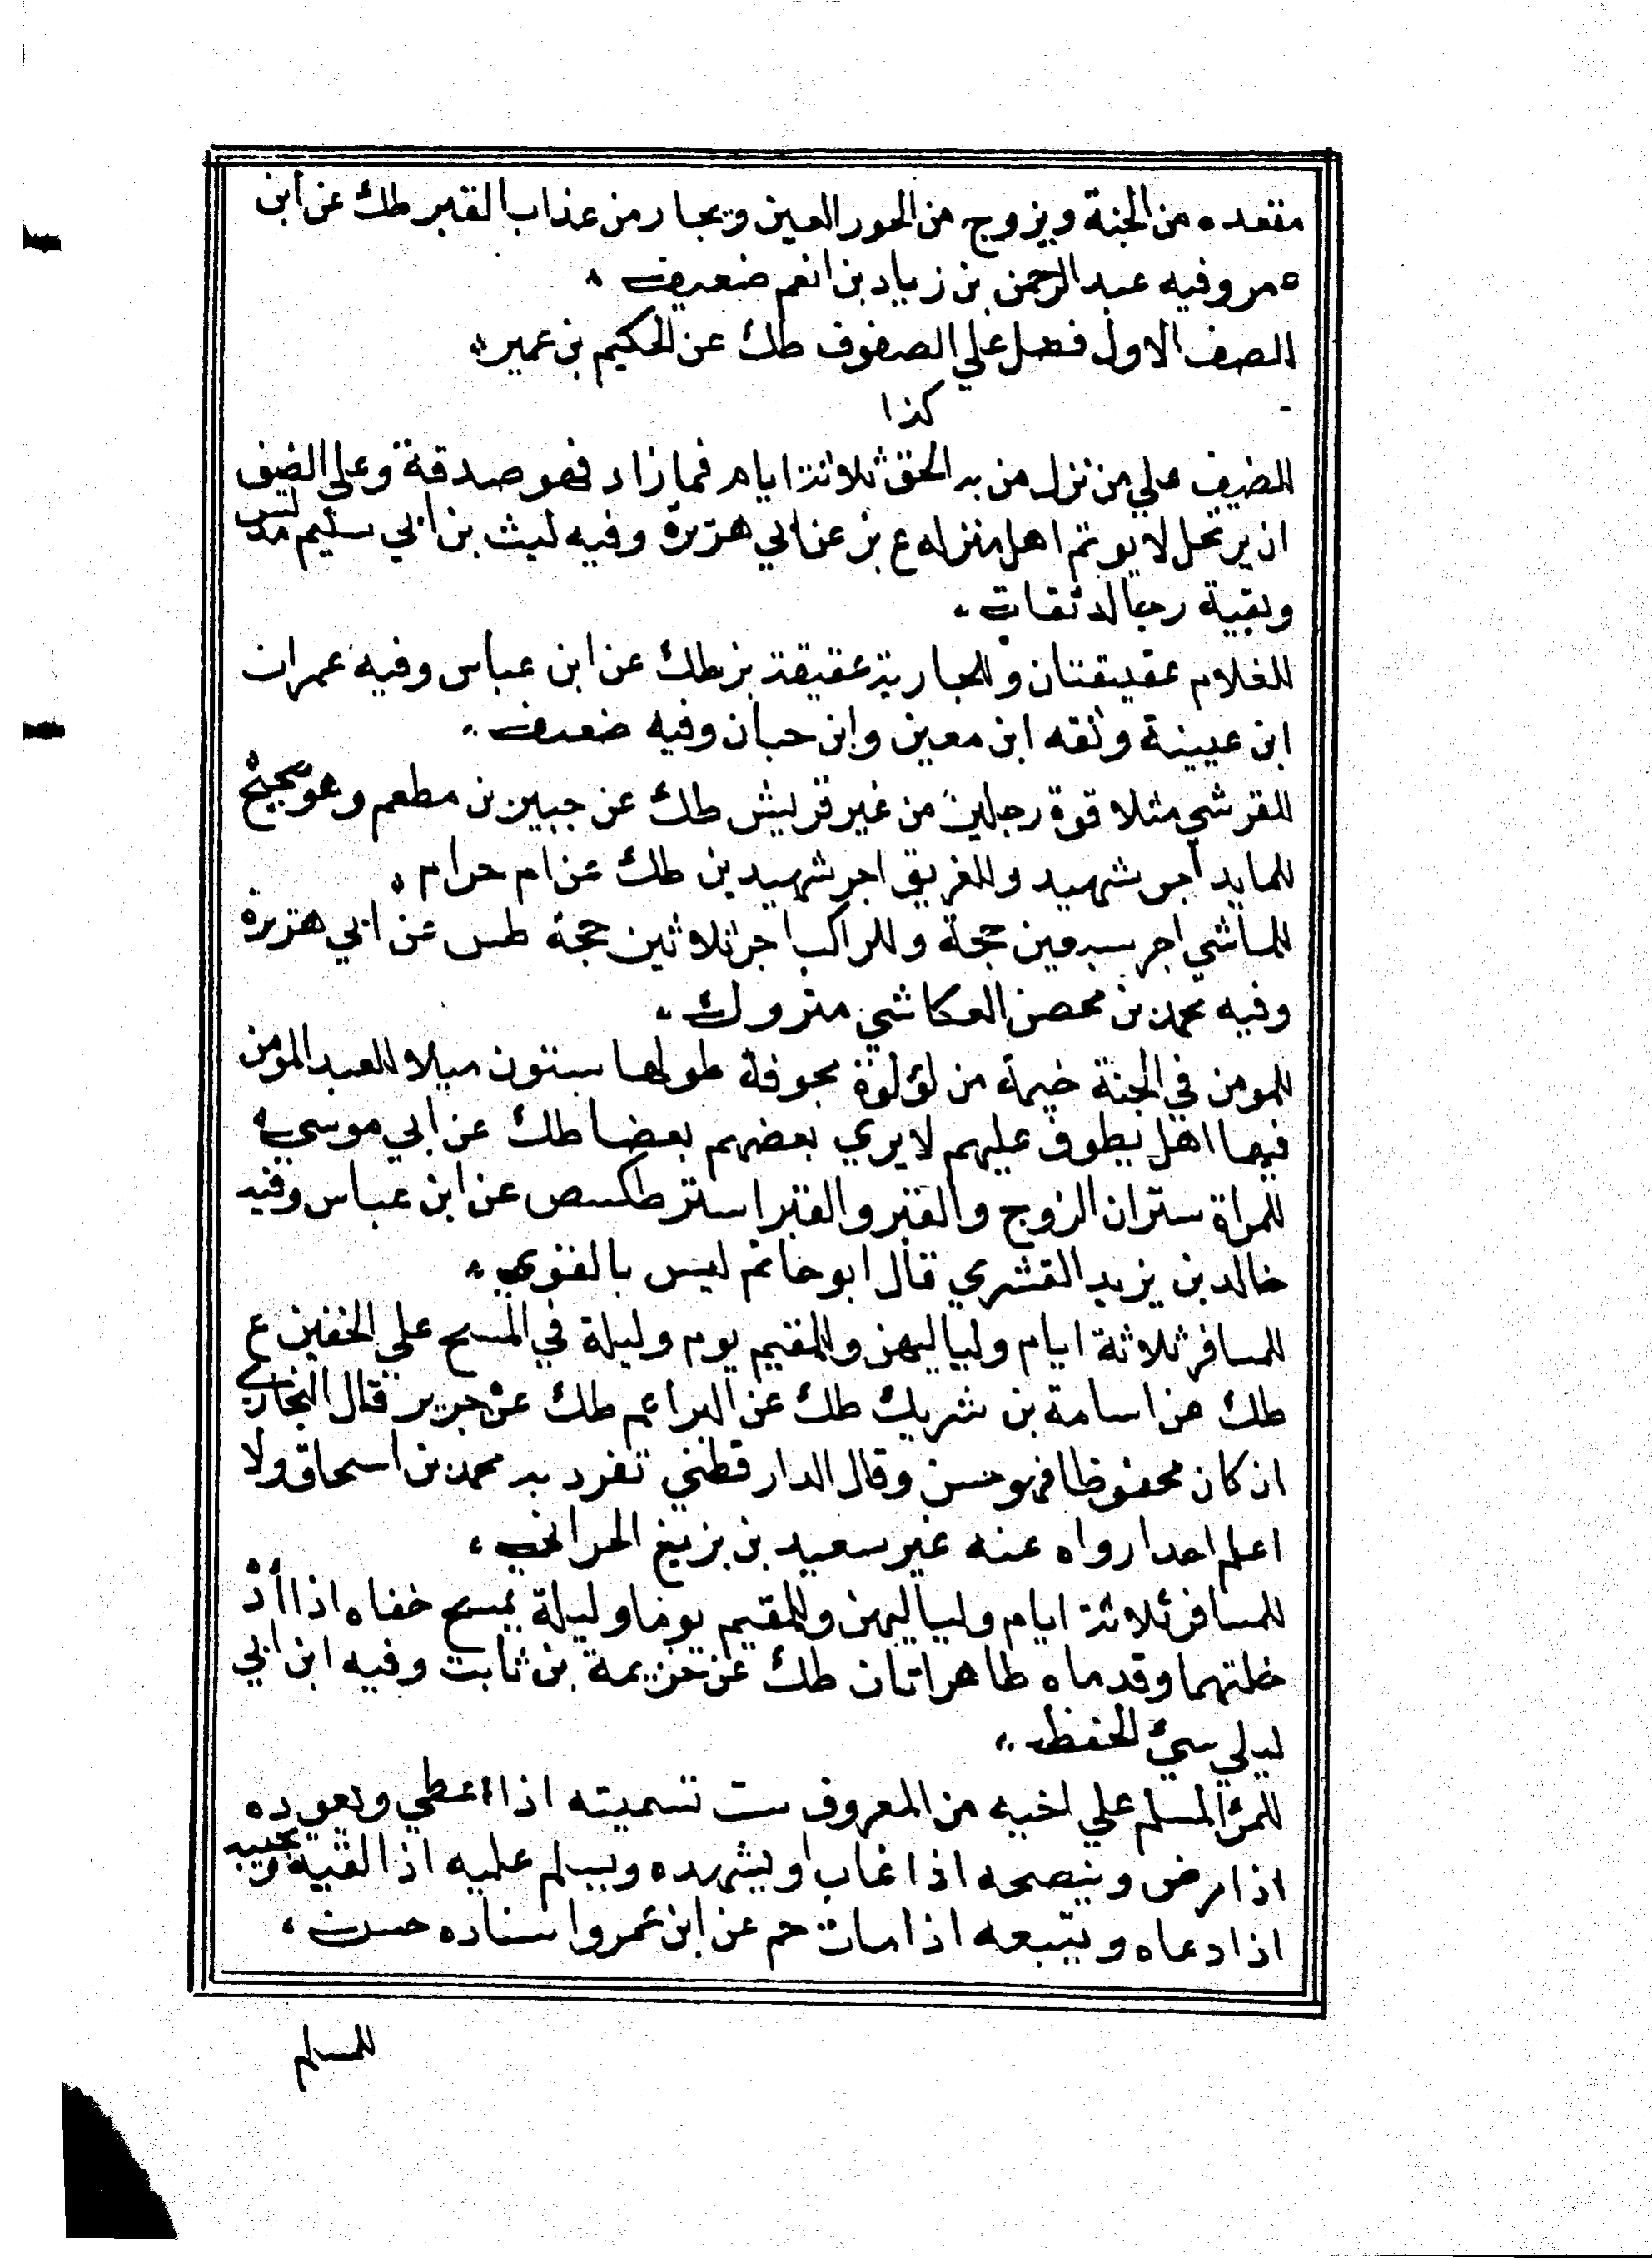 مقعده من الجنة ويزوج من الحور العين ويجار من عذاب القبر طك عن ابن
عمر وفيه عبد الرحمن بن زياد بن انعم ضعيف
للصف الاول فضل علي الصفوف طك عن الحكيم بن عمير
كذا
للضيف علي من نزل من به الحق ثلاثة ايام فما زاد فهو صدقة وعلي الضيف
ان يرتحل لا يوتم اهل منزله ع بز عن ابي هريرة وفيه ليث بن ابي سليم مدلس
وبقية رجاله ثقات
للغلام عقيقتان وللجارية عقيقة بز طك عن ابن عباس وفيه عمران
ابن عيينة وثقه ابن معين وابن حبان وفيه ضعف
للقرشي مثلا قوة رجلين من غير قريش طك عن جبير بن مطعم وهو صحيح
للمايد اجر شهيد وللغريق اجر شهيدين طك عن ام حرام
للماشي اجر سبعين حجة وللراكب اجر ثلاثين حجة طس عن ابي هريرة
وفيه محمد بن محصن العكاشي متروك
للمومن في الجنة خيمة من لؤلؤة مجوفة طولها ستون ميلا للعبد المؤمن
فيها اهل يطوف عليهم لا يري بعضهم بعضا طك عن ابي موسي
للمراة ستران الزوج والقبر والقبر استر طكسص عن ابن عباس وفيه
خالد بن يزيد القشري قال ابو حاتم ليس بالقوي
للمسافر ثلاثة ايام ولياليهن وللمقيم يوم وليلة في المسح علي الخفين ع
طك عن اسامة بن شريك طك عن البرا عم طك عن جرير قال البخاري
ان كان محفوظا فهو حسن وقال الدارقطني تفرد به محمد بن اسحاق ولا
اعلم احدا رواه عنه غير سعيد بن بزيغ الحراني
للمسافر ثلاثة ايام ولياليهن وللمقيم يوما وليلة يمسح خفاه اذا أد
خلتهما وقدماه طاهراتان طك عن خزيمة بن ثابت وفيه ابن ابي
ليلي سيئ الحفظ
للمرء المسلم علي اخيه من المعروف ست تسميته اذا اعطي ويعوده
اذا مرض وينصحه اذا غاب او يشهده ويسلم عليه اذا لقيه ويجيبه
اذا دعاه ويتبعه اذا مات حم عن ابن عمر واسناده حسن
للمسلم